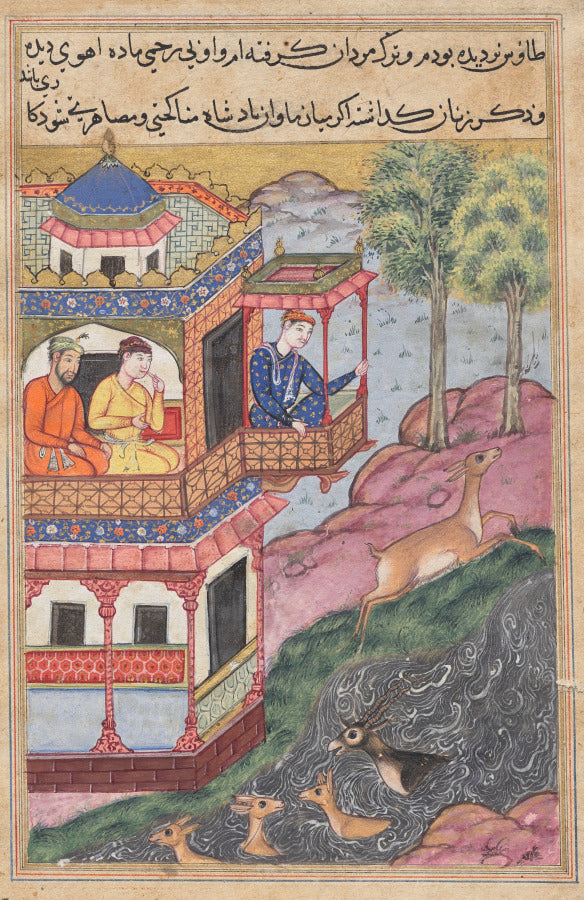 طاوس نر دیده بودم و ترک مردان کرفته ام و او بی رحمی ماده اهوی دیده
و ذکر زنان کداشته اکر میان ما و ان بادشاه مناکحتی و مصاهرتی شود کا